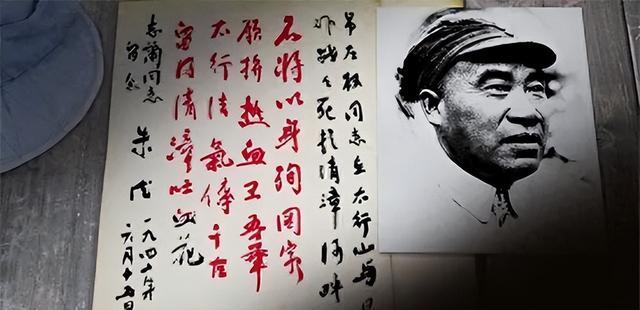 吊左权同志在太行山与日
作战々死於清漳河畔
名将以身殉国家
願拚热血卫吾華
太行浩氣傳千古
留得清漳吐血花
志蘭同志
留念
朱德
一九四二年
六月十五日